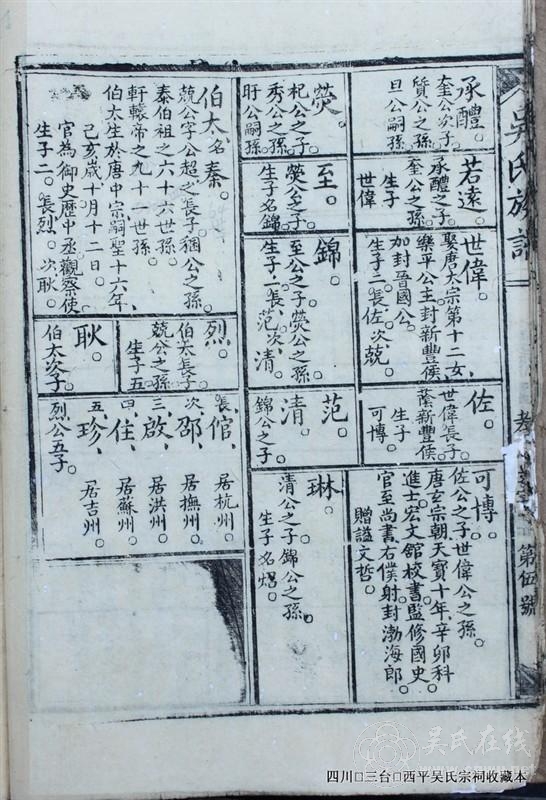 吳氏族譜
第伍號
承醴。
奎公次子。
質公之孫。
旦公嗣孫
若遠。
承醴之子。
奎公之孫。
生子
世偉
世偉。
娶唐太宗第十二女、
樂平公主封新豐侯
加封晉國公。
生子二。長佐。次兢。
佐。
世偉長子。
蔭新豐侯
生子
可博。
可博。
佐公之子世偉公之孫。
唐玄宗朝天寶十年、辛卯科
進士。宏文舘校書監修國史
官至尚書、右僕射封渤海郎。
贈謚文哲。
熒。
杞公之子。
秀公之孫。
盱公嗣孫
至。
熒公之子。
生子名錦
錦。
至公之子。熒公之孫。
生子二。長、范。次、清。
范。
清。
錦公之子。
琳。
清公之子。錦公之孫。
生子名熠。
伯太名秦。
兢公字公超之長子稛公之孫。
泰伯祖之六十六世孫。
軒轅帝之九十一世孫。
伯太生於唐中宗嗣聖十六年、
己亥歲、十月十二日。
官為御史歷中丞觀察使
生子二。長烈。次耿。
烈。
伯太長子
兢公之孫
生子五
耿。
伯太次子。
長倌、居杭州。
次、邵、居撫州。
三、啟、居洪州。
四、住、居蘇州。
五、珍、居吉州。
烈公五子。
吴氏在线
四川□三台□西平吴氏宗祠收藏本